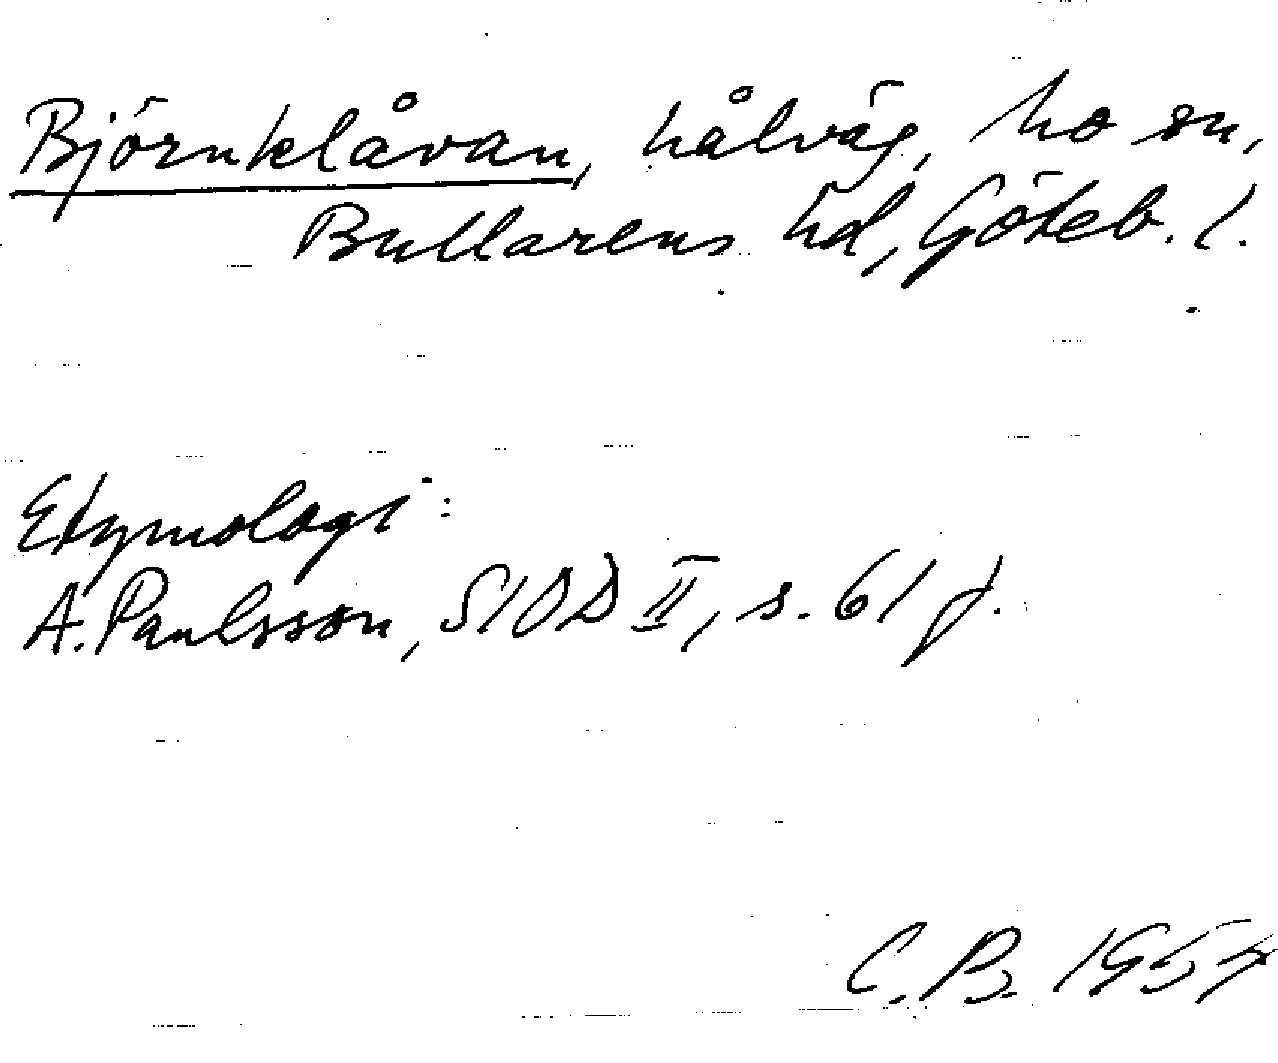 Björnklåvan, hålväg, Mo sn,
Bullarens hd, Göteb. l.
Etymologi:
A. Paulsson, SIOD II, s. 61 f.
C.B. 1957